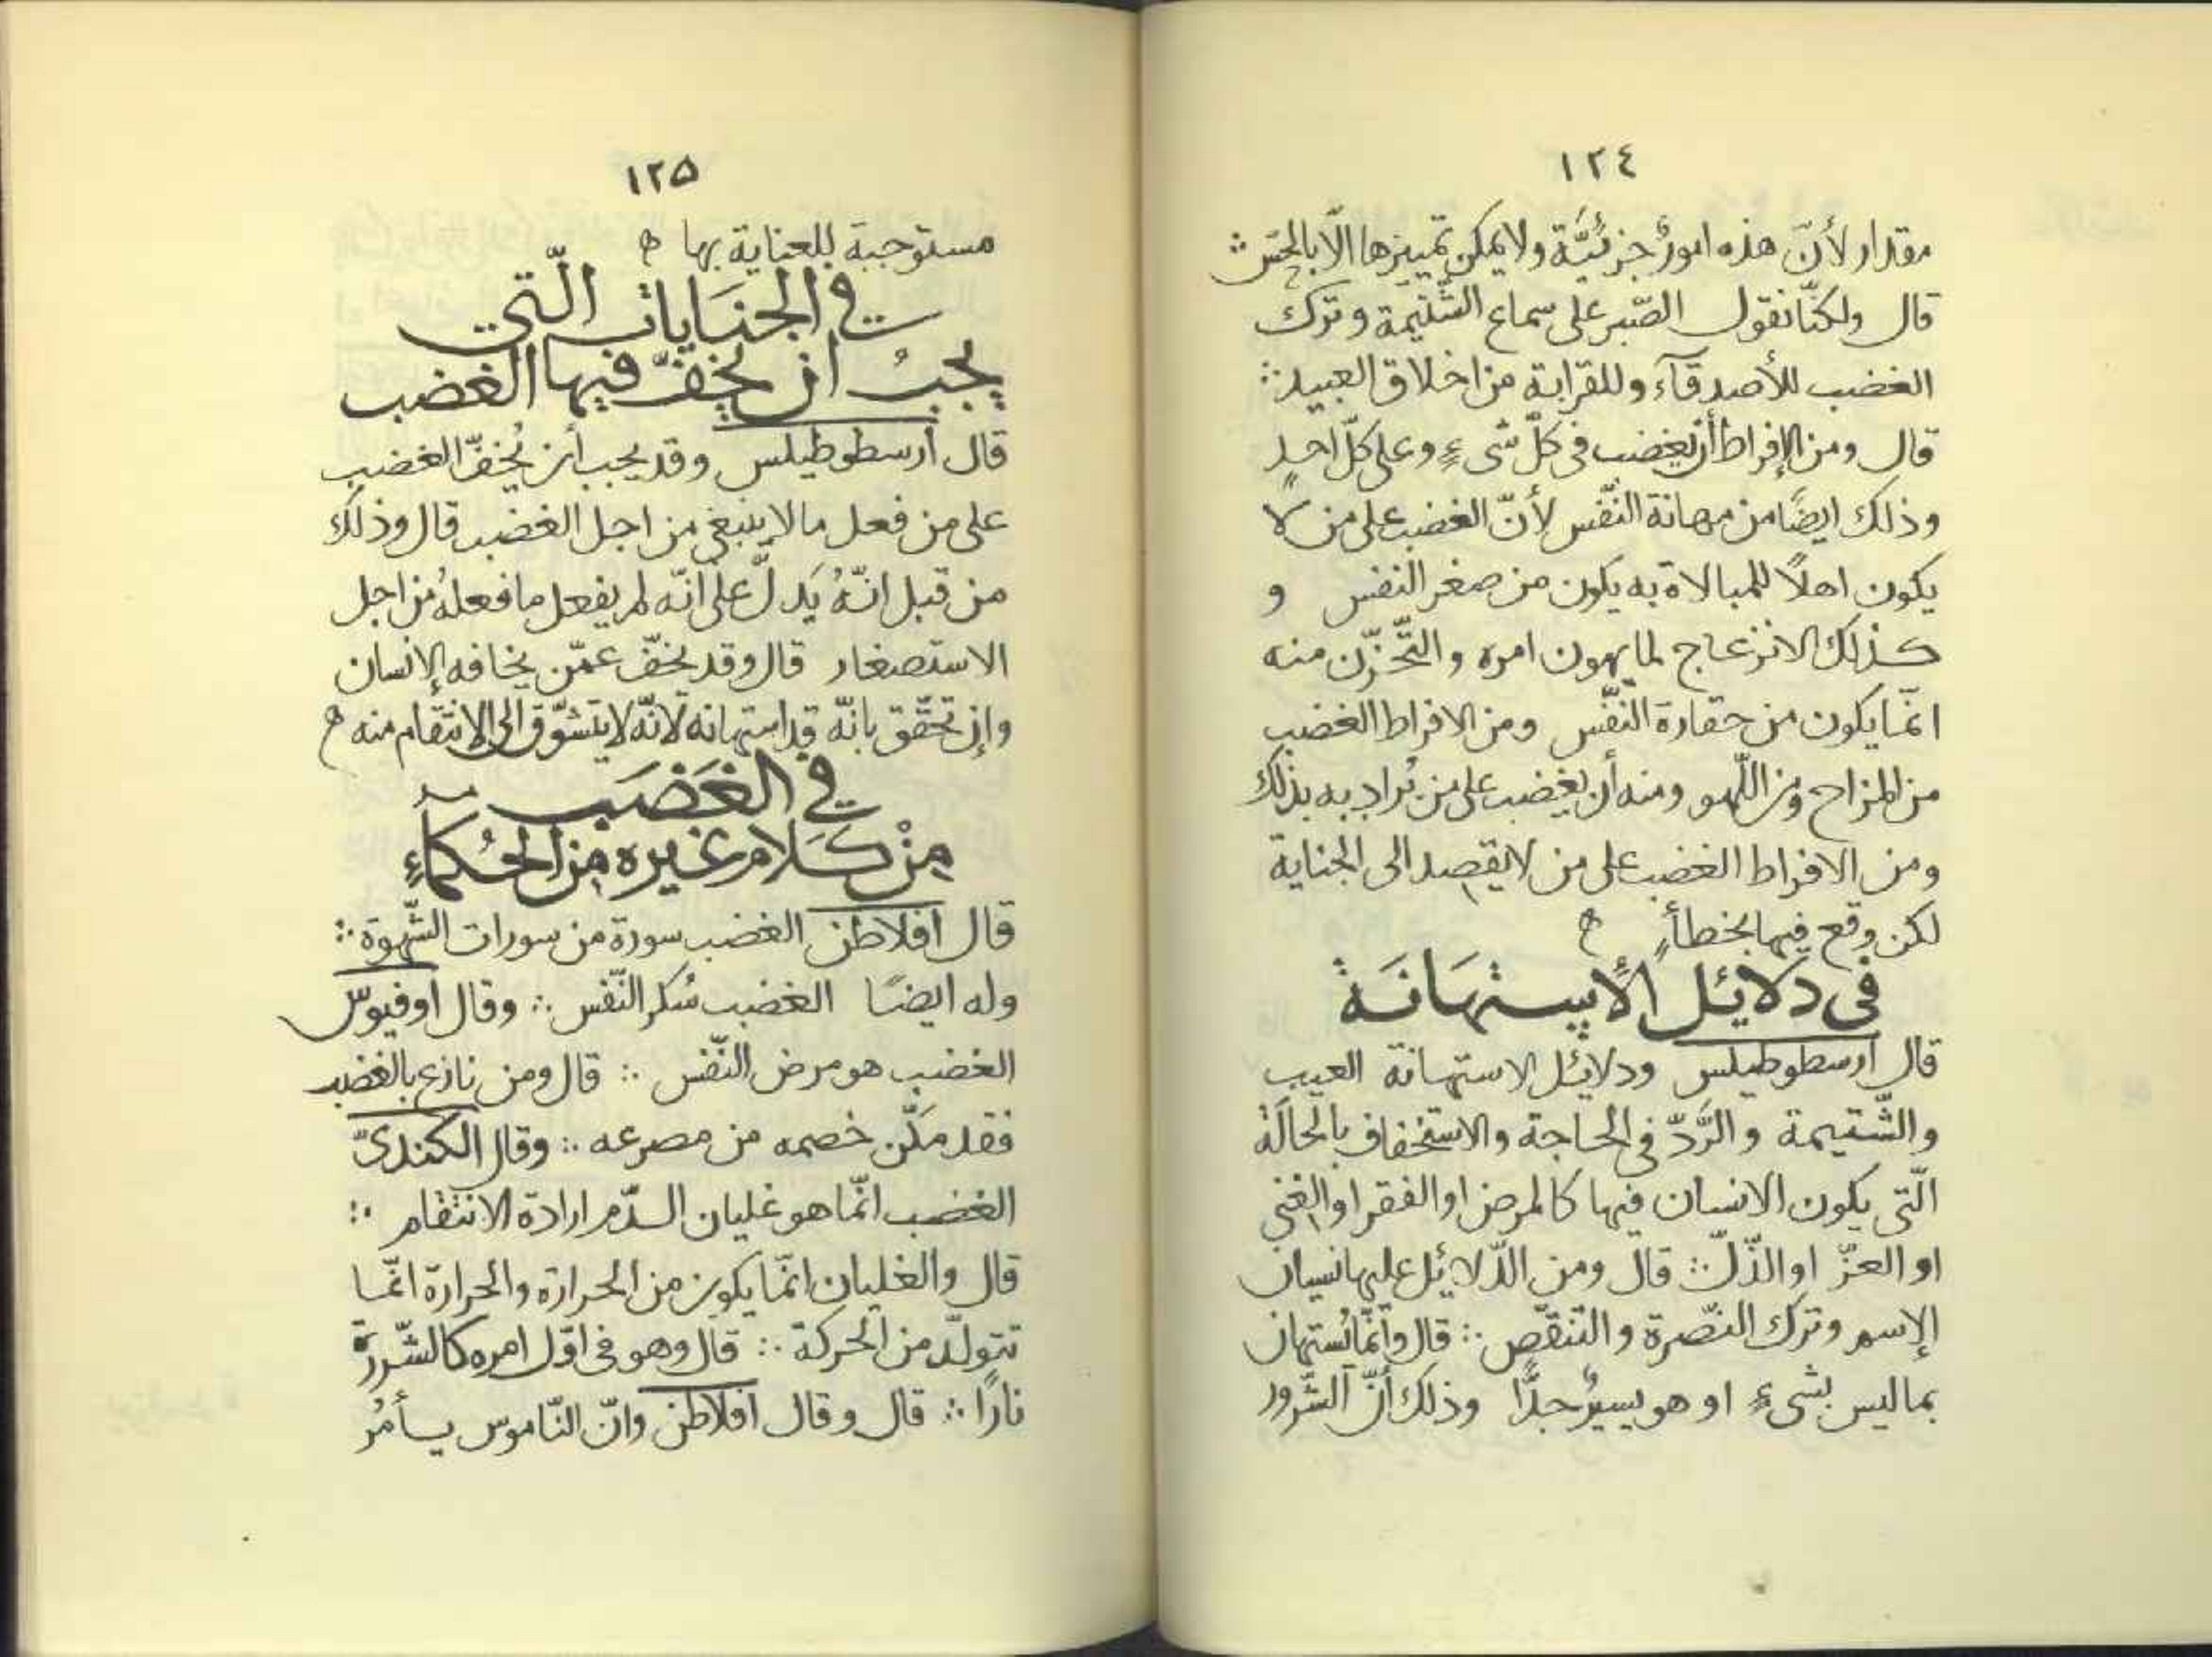 ١٢٤
مقدار لأنّ هذه امورٌ جزئيّة ولا يمكن تمييزها الّا بالحسّ ∴
قال ولكنّا نقول الصّبر على سماع الشّتيمة وترك
الغضب للأصدقآء وللقرابة من اخلاق العبيد ∴
قال ومن الإفراط أن يغضب فى كلّ شىءٍ وعلى كلّ احدٍ
وذلك ايضًا من مهانة النّفس لأنّ الغضب على من لا
يكون اهلًا للمبالاة به يكون من صغر النفس و
كذلك الانزعاج لما يهون امره والتّحزّن منه
انّما يكون من حقارة النّفس ومن الافراط الغضب
من المزاح ومن اللّهو ومنه أن يغضب على من يُراد به بذلك
ومن الافراط الغضب على من لا يقصد الى الجناية
لكن وقع فيها بخطأٍ
فى دلائل الاستهَانَة
قال ارسطوطيلس ودلائل الاستهانة العيب
والشّتيمة والرَّدّ فى الحاجة والاستخفاف بالحالَة
الّتى يكون الانسان فيها كالمرض او الفقر او الغنى
او العزّ او الذّلّ ∴ قال ومن الدّلائل عليها نسيان
الإسم وترك النّصرة والتّنقّص ∴ قال وانّما يُستهان
بما ليس بشىءٍ او هو يسيرٌ جدًّا وذلك أنّ الشّرور
١٢٥
مستوجبة للعناية بها
فى الجنَايات الّتى
يجبُ ان يخفّ فيها الغضب
قال أرسطوطيلس وقد يجب أن يُخفّ الغضب
على من فعل ما لا ينبغى من اجل الغضب قال وذلك
من قبل انّهُ يَدلّ على انّه لم يفعل ما فعلهُ من اجل
الاستصغار قال وقد يخفّ عمّن يخافه الإنسان
وإن تحقّق بانّه قد استهانه لانّه لا يتشوّق الى الانتقام منه
فى الغَضَب
مِنْ كَلامِ غيره مِن الحُكمآءِ
قال افلاطن الغضب سورة من سورات الشّهوة ∴
وله ايضًا الغضب سُكر النّفس ∴ وقال اوفيوس
الغضب هو مرض النّفس ∴ قال ومن نازع بالغضب
فقد مَكّن خصمه من مصرعه ∴ وقال الكندىّ
الغضب انّما هو غليان الدّم ارادة الانتقام ∴
قال والغليان انّما يكون من الحرارة والحرارة انّما
تتولّد من الحركة ∴ قال وهو فى اوّل امره كالشّررة
نارًا ∴ قال وقال افلاطن وانّ النّاموس يأمُر